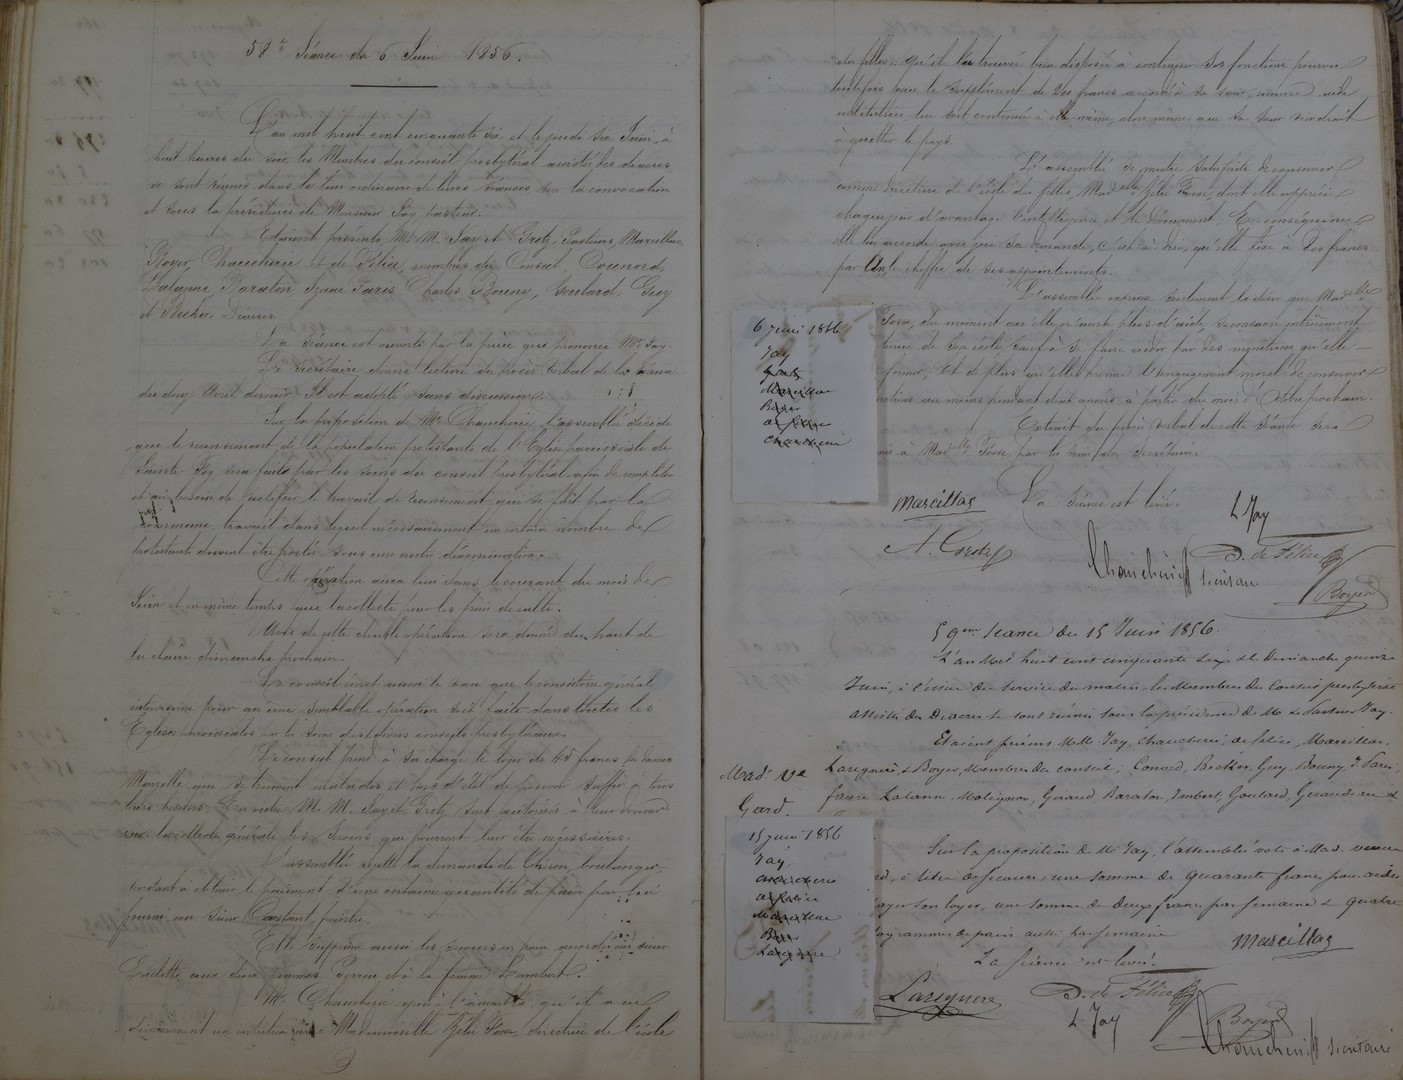 58e Séance du 6 Juin 1856.
L'an mil huit cent cinquante six et le jeudi six Juin, à
huit heures du soir, les Membres du conseil presbytéral assistés des diacres
se sont réunis dans le lieu ordinaire de leurs séances sur la convocation
et sous la présidence de Monsieur Jay, pasteur.
Etaient présents M. M. Jay et Grotz, Pasteurs, Marcillas,
Boyer, Chaucherie et de Félice, membres du Conseil, Counord,
Lalanne, Baraton, Isaac Paris, Charles Bouny, Goulard, Guy
et Diacres.
La séance est ouverte par la prière que prononce Mr Jay.
Le Secrétaire donne lecture du procès verbal de la séance
du Avril dernier. Il est adopté sans discussion.
Sur la proposition de Mr Chaucherie, l'assemblée décide
que le recensement de la population protestante de l'Eglise paroissiale de
Sainte-Foy sera fait par les soins du conseil presbytéral afin de compléter
et au besoin de rectifier le travail de recensement qui se fait par la
commune, travail dans lequel nécessairement un certain nombre de
protestants doivent être portés sous une autre dénomination.
Cette opération aura lieu dans le courant du mois de
Juin et en même temps que la collecte pour les frais de culte.
Avis de cette double opération sera donné du haut de
la chaire dimanche prochain.
Le conseil émet aussi le vœu que le consistoire général
intervienne pour qu'une semblable opération soit faite dans toutes les
Eglises paroissiales par les soins des divers conseils presbytéraux.
Le conseil prend à sa charge le loyer de 45 francs
Mazelle que se trouvent malades et hors d'état de pouvoir suffire à tous
leurs besoins. En outre M. M. Jay et Grotz sont autorisés à leur donner
sur la collecte générale les secours qui pourront leur être nécessaires.
L'assemblée rejette la demande de boulanger
tendant à obtenir le paiement d'une certaine quantité de pain par lui
fourni au sieur Constant, peintre.
Elle supprime aussi les secours en pain accordés au sieur
aux deux femmes et à la femme Lambert.
Mr Chaucherie expose à l'assemblée qu'il a eu
dernièrement un entretien avec Mademoiselle Zélie Fosse, directrice de l'école
des filles, qu'il l'a trouvée bien disposée à continuer ses fonctions pourvu
toutefois que le supplément de 200 francs accordé à sa sœur, comme aide
institutrice lui soit continué à elle même, alors même que sa sœur viendrait
à quitter le pays.
L'assemblée se montre satisfaite de conserver
comme directrice de l'école des filles, Madelle Zélie Fosse, dont elle apprécie
chaque jour d'avantage l'intelligence et le dévouement. En conséquence
elle lui accorde avec joie sa demande, c'est-à-dire, qu'elle fixe à francs
par an, le chiffre de ses appointements.
L'assemblée exprime seulement le désir que Madelle
Fosse, du moment qu'elle n'aura plus d'aide, se consacre entièrement
tenue de son école sauf à se faire aider par des monitrices qu'elle
former, Et de plus qu'elle prenne l'engagement moral de conserver
au moins pendant deux années à partir du mois d'8bre prochain.
Extrait du procès verbal de cette séance sera
à Madelle Fosse par les soins du Secrétaire.
6 juin 1856
Jay
Grotz
Marcillac
Boyer
de félice
Chaucherie
La séance est levée.
Marcillas
L Jay
A. Grotz
D. de Félice
Chaucherie secrétaire
Boyer
59eme Séance du 15 Juin 1856.
L'an Mil huit cent cinquante six et Dimanche quinze
Juin, à l'issue du service du matin les Membres du Conseil presbytéral
assistés des Diacres se sont réunis sous la présidence de Mr Le Pasteur Jay.
Etaient présens MM Jay, Chaucherie, de félice, Marcillas,
Laregnère & Boyer, Membres du conseil; Conord, Guy, Bouny, I Paris,
Faure Lalanne, Matignon, Giraud Baraton, Imbert, Goulard, &
Mad. Ve
Gard.
15 juin 1856
Jay
Chaucherie
de félice
Marcillac
Boyer
Laregnère
Sur la proposition de Mr Jay, l'assemblée vote à Mad. veuve
à titre de secours, une somme de quarante francs pour aider
payer son loyer, une somme de deux francs par semaine & quatre
kilogrammes de pain aussi par semaine
La séance est levée.
Marcillas
Laregnere
D. de Félice
L Jay
Boyer
Chaucherie secrétaire